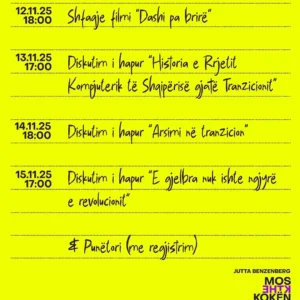 12.11.25
18:00
Shfaqje filmi "Dashi pa brirë"
13.11.25
17:00
Diskutim i hapur "Historia e Rrjetit
Kompjuterik të Shqipërisë gjatë Tranzicionit"
14.11.25
18:00
Diskutim i hapur "Arsimi në tranzicion"
15.11.25
17:00
Diskutim i hapur "E gjelbra nuk ishte ngjyrë
e revolucionit"
& Punëtori (me regjistrim)
JUTTA BENZENBERG
MOS
KTHE
KOKËN